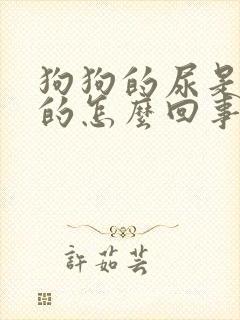 狗狗的尿是
的怎麼回事
許茹芸